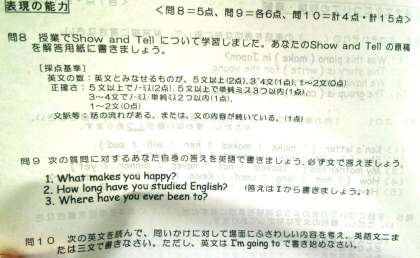 表現の能力
＜問8＝5点、問9＝各6点、問10＝計4点・計15点＞
問8 授業でShow and Tell について学習しました。あなたのShow and Tell の原稿
を解答用紙に書きましょう。
［採点基準］
英文の数：英文とみなせるものが、5文以上(2点)、3~4文(1点)、1~2文(0点)
正確さ：5文以上でﾉｰﾐｽ(2点)、5文以上で単純ミス3つ以内(1点)、
3~4文でﾉｰﾐｽ・単純ﾐｽ2つ以内(1点)、
1~2文(0点)
文脈等：話の流れがある。または、文の内容が続いている。(1点)
問9 次の質問に対するあなた自身の答えを英語で書きましょう。必ず文で答えましょう。
1. What makes you happy?
2. How long have you studied English? (答えはIから書きましょう。)
3. Where have you ever been to?
問10 次の英文を読んで、問いかけに対して場面にふさわしい内容を考え、英語文二ま
たは三文で書きなさい。ただし、英文は I'm going to で書き始めなさい。